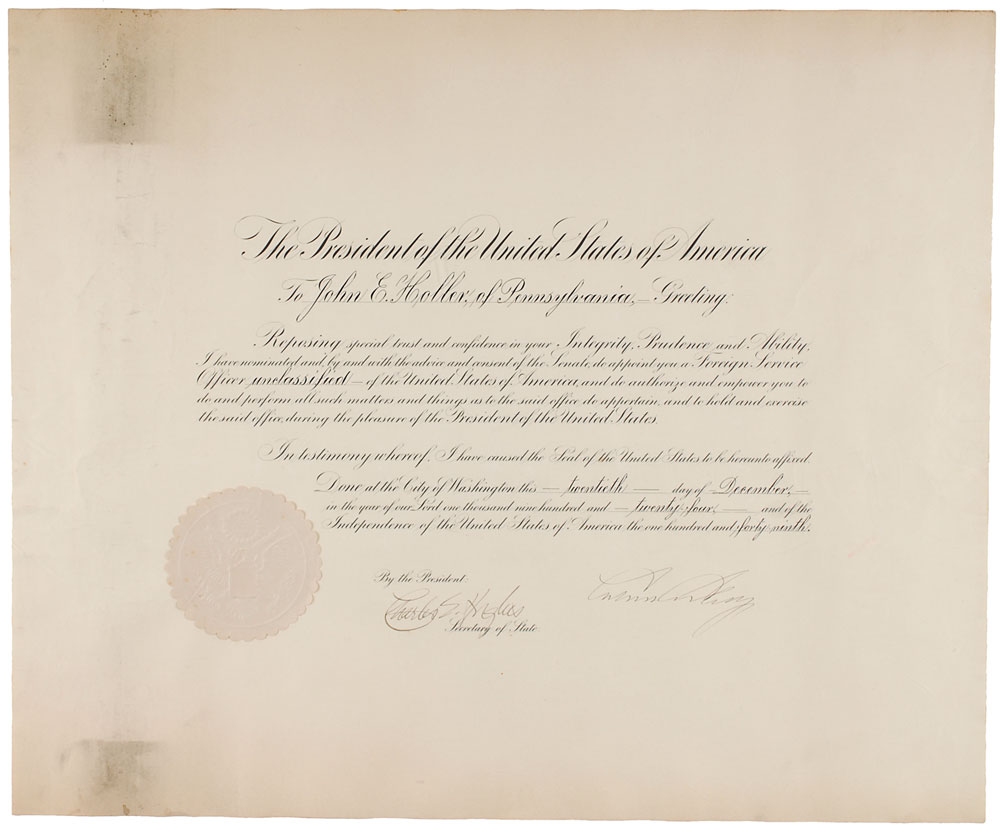 The President of the United States of America
To John E. Holler, of Pennsylvania, — Greeting:
Reposing special trust and confidence in your Integrity, Prudence and Ability,
I have nominated and, by and with the advice and consent of the Senate, do appoint you a Foreign Service
Officer, unclassified — of the United States of America, and do authorize and empower you to
do and perform all such matters and things as to the said office do appertain, and to hold and exercise
the said office, during the pleasure of the President of the United States.
In testimony whereof, I have caused the Seal of the United States to be hereunto affixed.
Done at the City of Washington this — twentieth — day of — December, —
in the year of our Lord one thousand nine hundred and — twenty-four, — and of the
Independence of the United States of America the one hundred and forty-ninth.
By the President:
Charles E. Hughes
Secretary of State.
Calvin Coolidge